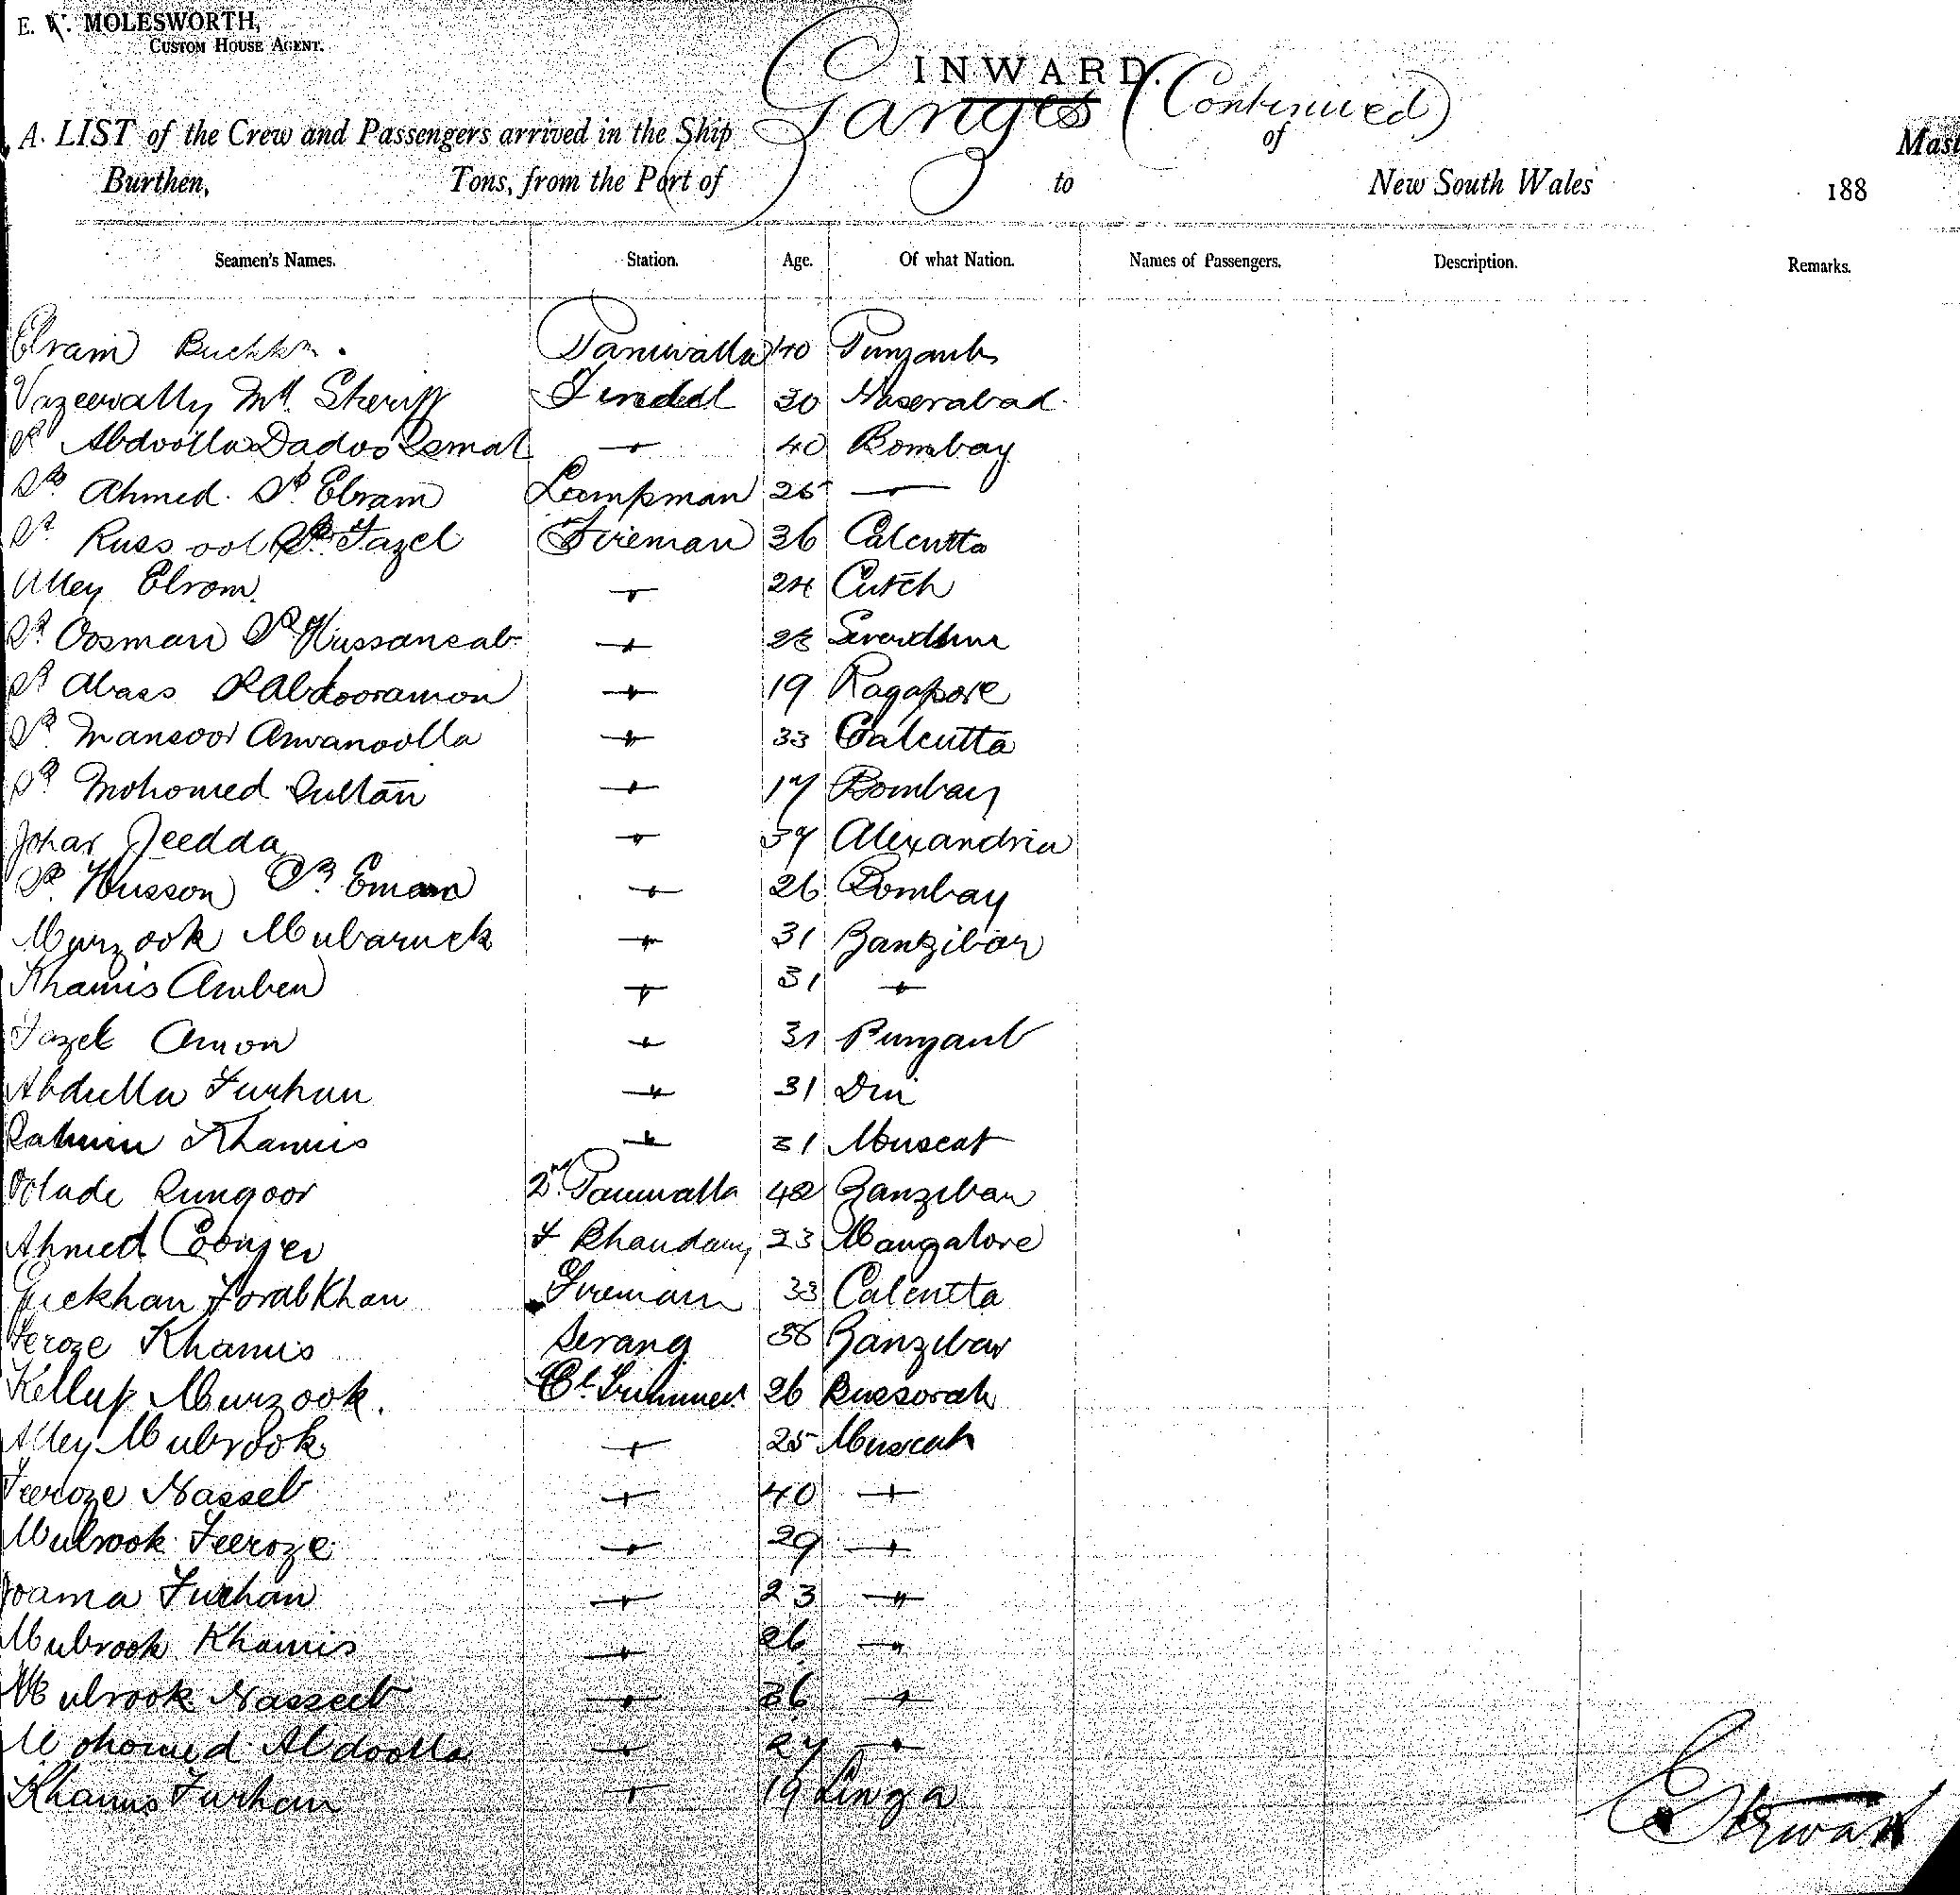 E. W. MOLESWORTH,
CUSTOM HOUSE AGENT.
INWARD.
Ganges (Continued)
A LIST of the Crew and Passengers arrived in the Ship of Mast
Burthen, Tons, from the Port of to New South Wales 188
Seamen's Names. Station. Age. Of what Nation. Names of Passengers. Description. Remarks.
Ebram Paniwalla 40 Punjaub
Vazeerally Md. Sheriff Tindal 30 Naserabad
Sk Abdoolla Dadoo Esmal 40 Bombay
Sk Ahmed Sk Ebram Lampman 25
Sk Russool Sk Fazel Fireman 36 Calcutta
Alley Ebrom 24 Cutch
Sk Oosman Sk Hussancab 28
Sk Abass Sk Abdooramon 19 Ragapore
Sk Mansoor Amanoolla 33 Calcutta
Sk Mohomed Sultan 17 Bombay
Johar Jeedda 37 Alexandria
Sk Husson Sk Emam 26 Bombay
Murzook Mubaruck 31 Zanzibar
Khamis Amben 31
Fazel Amon 31 Punjaub
Abdulla Furhan 31 Diu
Khamis 31 Muscat
Rungoor 2nd Paniwalla 42 Zanzibar
Ahmed F Bhandary 23 Mangalore
Khan Fireman 33 Calcutta
Feroze Khamis Serang 38 Zanzibar
Kellup Murzook. Cl Trimmer 26 Bussorah
Alley Mubrook 25 Muscat
Feeroze Nasseb 40
Mubrook Feeroze 29
Joama Furhan 23
Mubrook Khamis 26
Mubrook Nasseeb 36
Mohomed Abdoolla 27
Khamis Furhan 19 Linga
Stewart